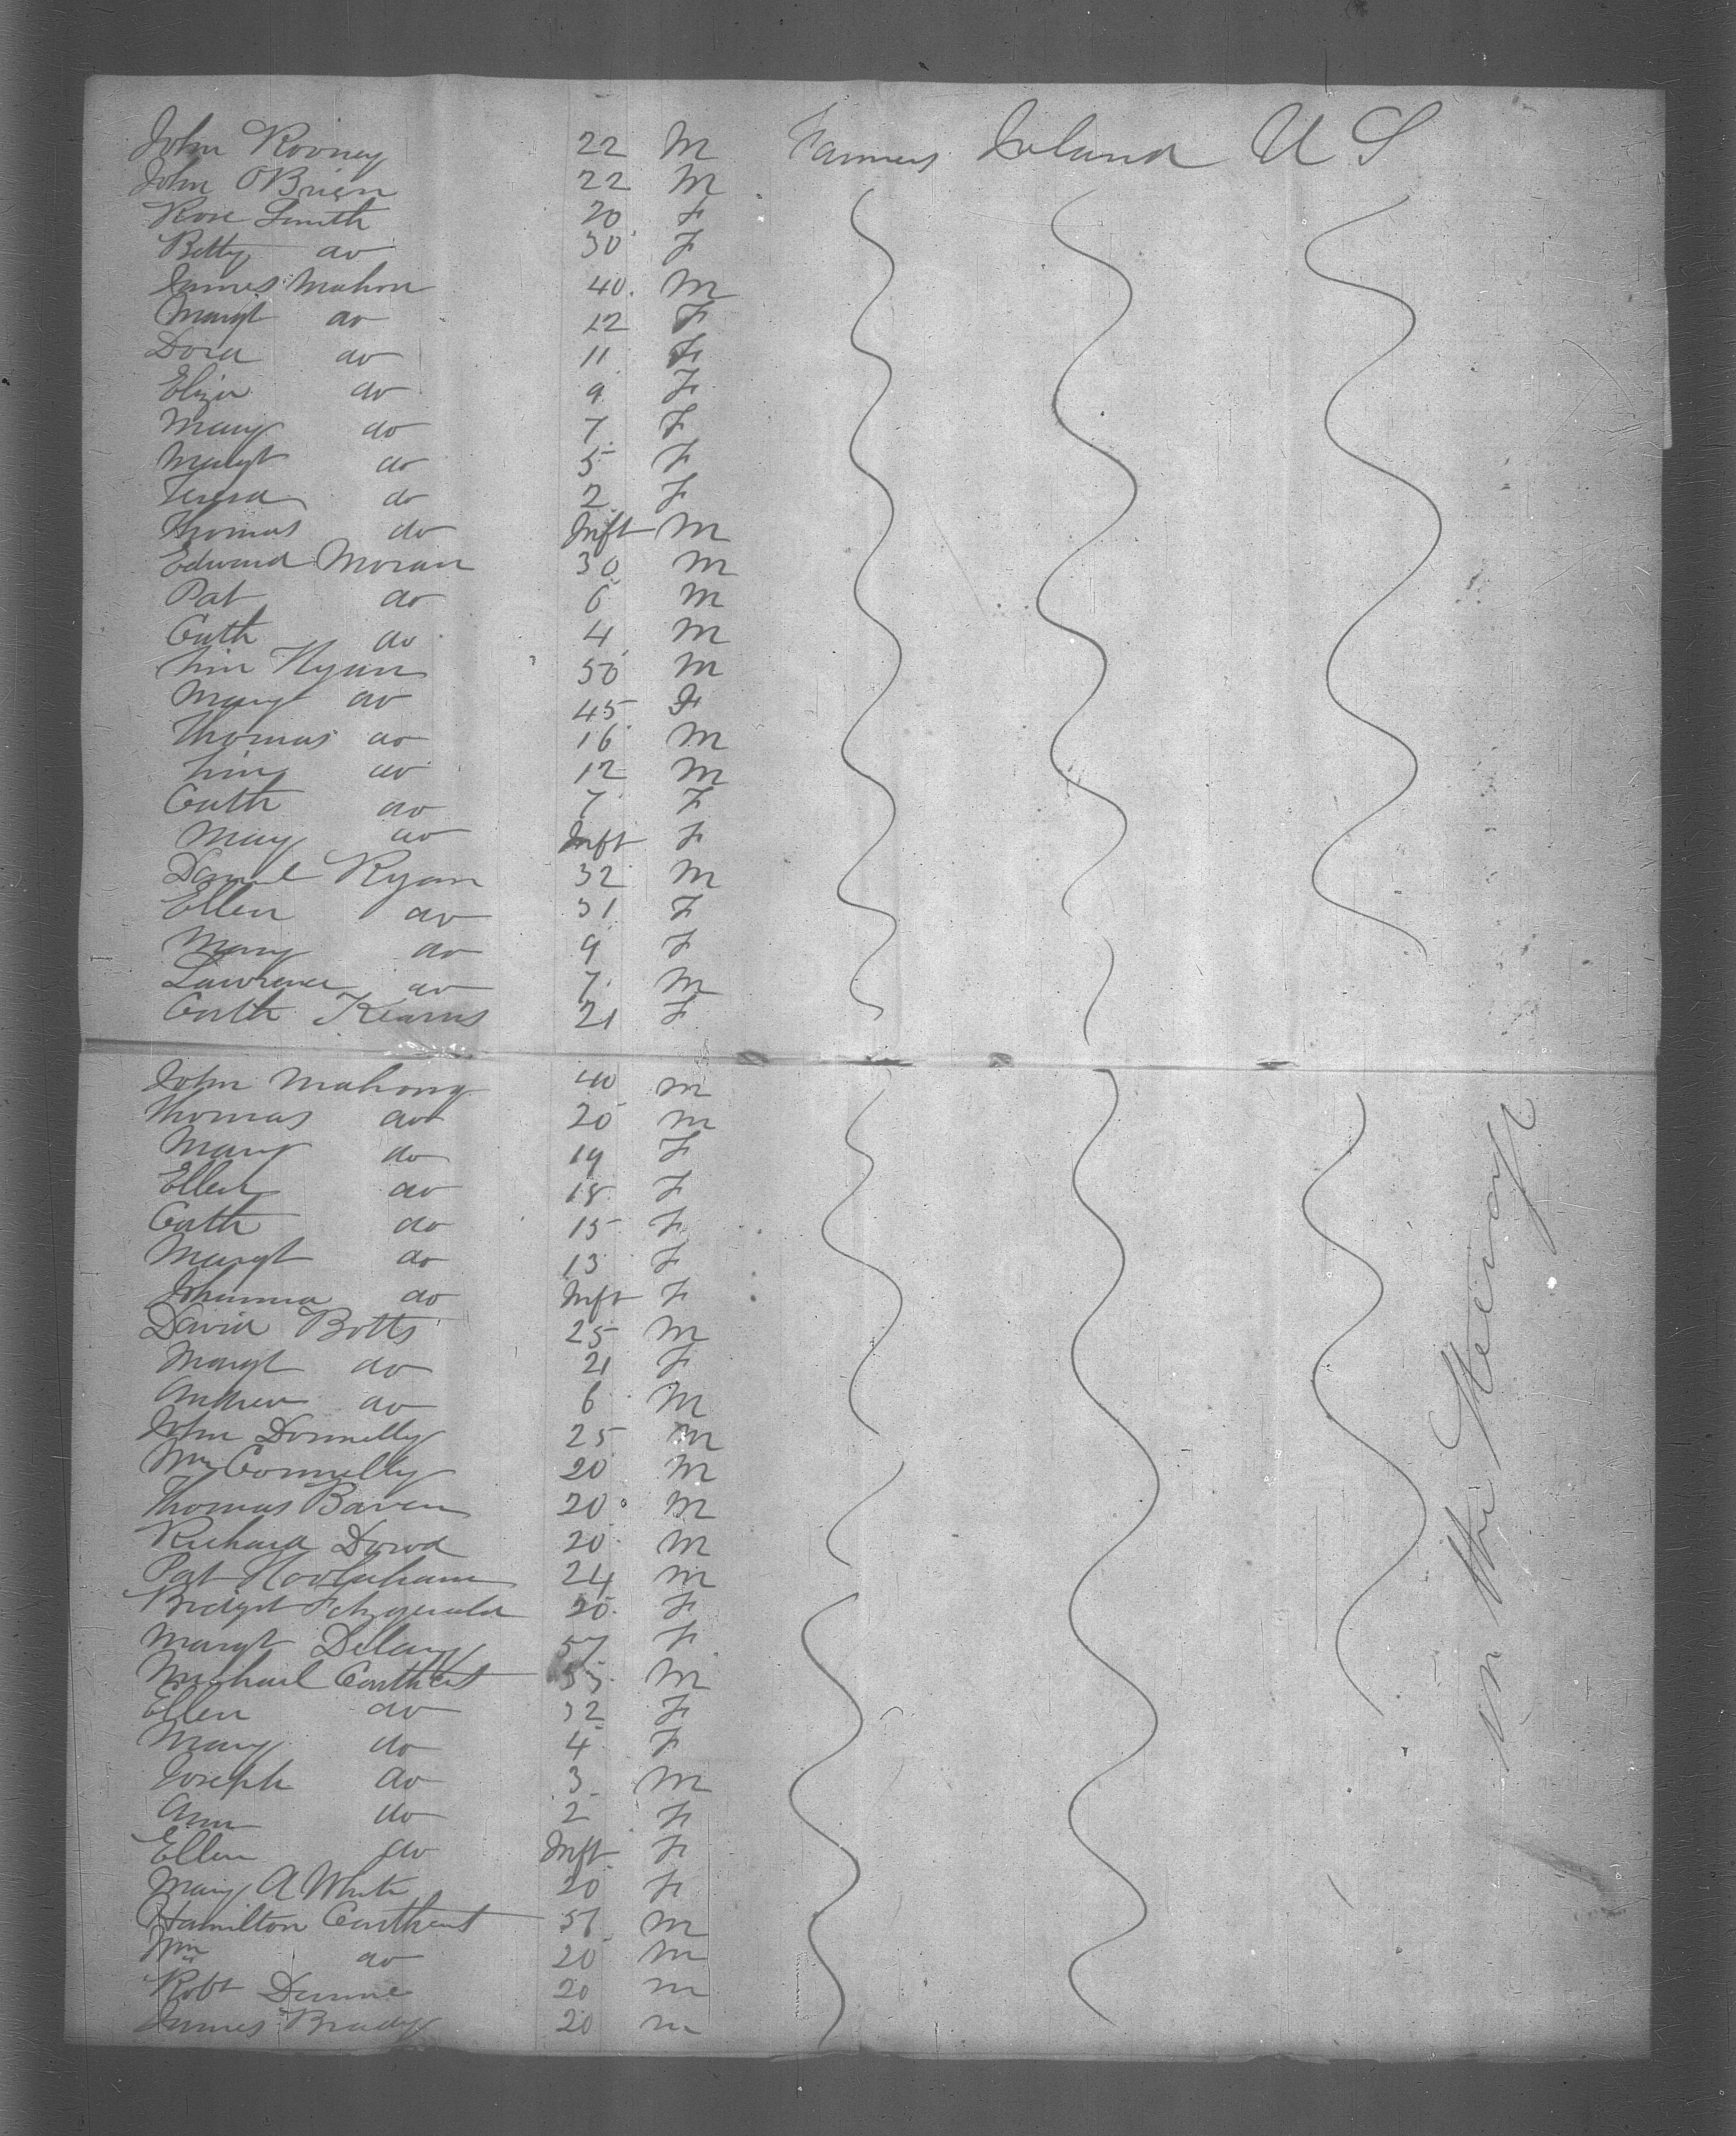 John Rooney 22 M Farmers Ireland U S
John OBrien 22 M
Rose Smith 20 F
Betty do 30 F
James Mahon 40 M
Margt do 12 F
Dora do 11 F
Eliza do 9 F
Mary do 7 F
Margt do 5 F
Teresa do 2 F
Thomas do Inft M
Edward Moran 30 M
Pat do 6 M
Cath do 4 M
Tim Ryan 50 M
Margt do 45 F
Thomas do 16 M
Tim do 12 M
Cath do 7 F
Mary do Inft F
Daniel Ryan 32 M
Ellen do 31 F
Mary do 9 F
Lawrence do 7 M
Cath Kearns 21 F
John Mahony 40 M
Thomas do 20 M
Mary do 19 F
Ellen do 18 F
Cath do 15 F
Margt do 13 F
Johanna do Inft F
David Botts 25 M
Margt do 21 F
Andrew do 6 M
John Donnelly 25 M
Wm Connelly 20 M
Thomas Baven 20 M
Richard Dowd 20 M
Pat Hoolahan 24 M
Bridget Fitzgerald 20 F
Margt Delany 57 F
Michael 33 M
Ellen do 32 F
Mary do 4 F
Joseph do 3 M
Ann do 2 F
Ellen do Inft F
Mary A White 20 F
Hamilton 51 M
Wm do 20 M
Robt Dunne 20 M
James Brady 20 M
in the Steerage